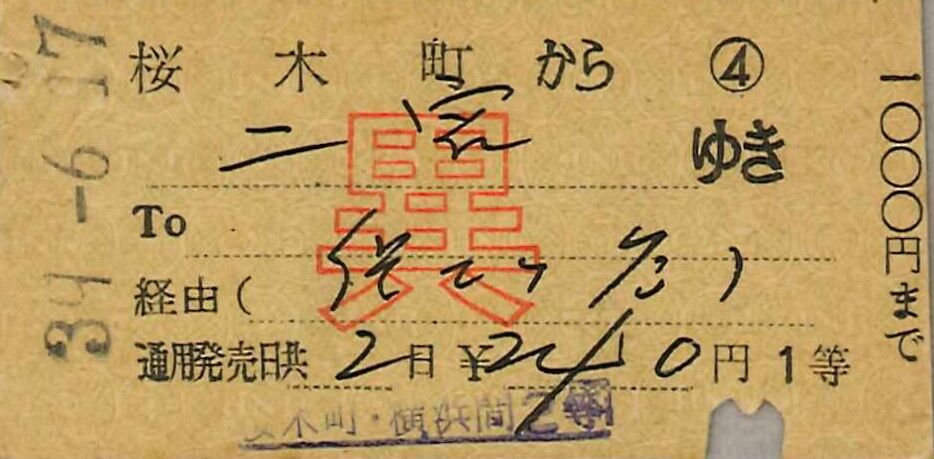 桜木町から ④
二宮 ゆき
To
経由(
通用発売日共 2日 ¥ 円 1等
桜木町・横浜間2等
異
一〇〇〇円まで
34 -6 17